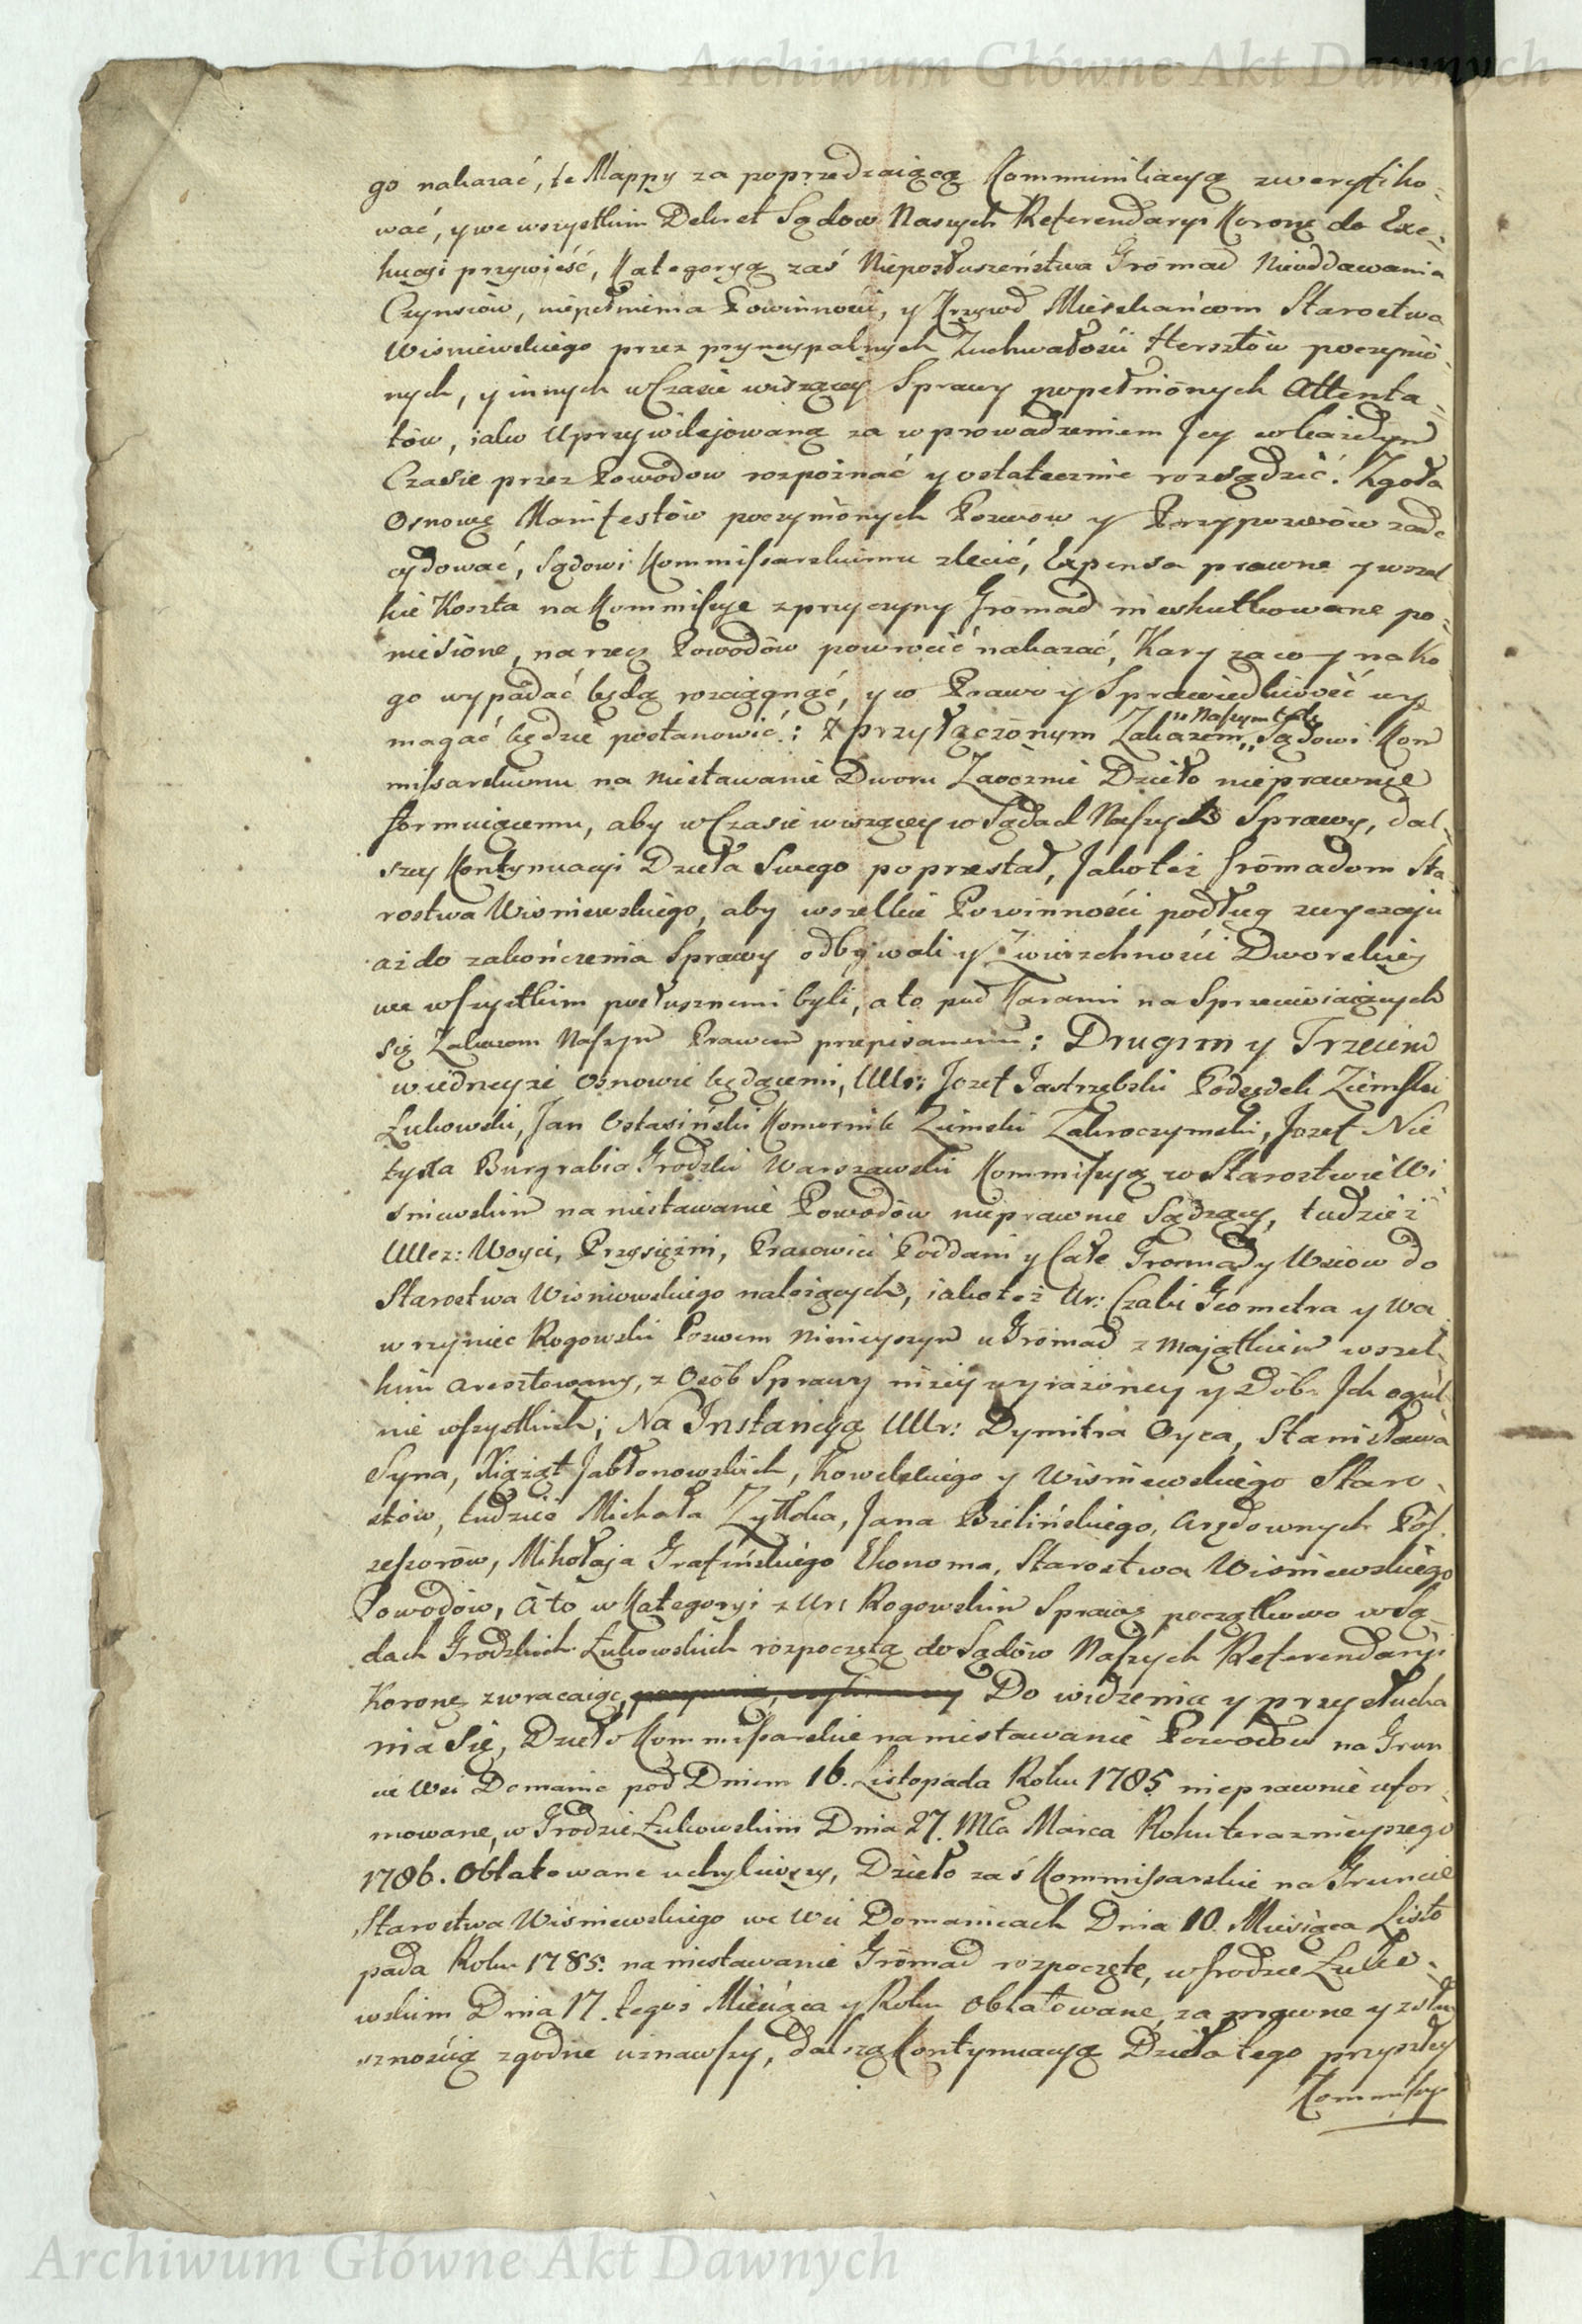 Archiwum Główne Akt Dawnych
go nakazać, te Mappy za poprzedzaiącą Kommunikacyą zweryfiko-
wać, y we wszystkim Dekret Sądow Naszych Referendaryi Koronę do Exe-
kucyi przywieść, Kategoryą zaś Nieposłuszeństwa Gromad Nieoddawania
Czynszów, niepełnienia Powinności, y Krzywd Mieszkańcom Starostwa
Wisniewskiego przez pryncypalnych Zuchwałości Hersztów poczynio-
nych, y innych w Czasie wiszącey Sprawy popełnionych Attenta-
tów, iako Uprzywilejowaną za wprowadzeniem Jey w każdym
Czasie przez Powodow rozpoznać y ostatecznie rozsądzić. Zgoła
Osnowę Manifestów poczynionych Pozwow y Przypozwów zade
cydować, Sądowi Kommissarskiemu zlecić, Expensa prawne y wszel
kie Koszta na Kommissye z przyczyny Gromad nieskutkowane po-
niesione, na rzecz Powodów powrócić nakazać, Kary za co y na Ko
go wypadać będą rozciągnąć, y co Prawo y Sprawiedliwość wy
magać będzie postanowić: Z przyłączonym Zakazem „w Naszym tych„ Sądowi Kom
missarskiemu na niestawanie Dworu Zaocznie Dzieło nieprawnie
formuiącemu, aby w Czasie wiszącey w Sądach Naszych Sprawy, dal-
szey Kontynuacyi Dzieła Swego poprzestał, Jako też Gromadom Sta-
rostwa Wisniewskiego, aby wszelkie Powinności podług zwyczaju
aż do zakończenia Sprawy odbywali y Zwierzchności Dworskiey
we wszystkim posłusznemi byli, a to pod Karami na Sprzeciwiaiących
się Zakazom Naszym Prawem przepisanemi: Drugim y Trzecim
w iedneyże Osnowie będącemi, UUr: Jozef Jastrzębski Podsędek Ziemski
Łukowski, Jan Ostasiński Komornik Ziemski Zakroczymski, Jozef Nie
tyxa Burgrabia Grodzki Warszawski Kommissyą w Starostwie Wi-
sniewskim na niestawanie Powodów nieprawnie Sądzący, tudzież
UUcz: Woyci, Przysiężni, Pracowici Poddani y Całe Gromady Wsiow do
Starostwa Wisniowskiego należących, iako też Ur: Czaki Geometra y Wa
wrzyniec Rogowski Pozwem Ninieyszym u Gromad z Majątkiem wszel-
kim aresztowany, z Osób Sprawy niżey wyrażoney y Dóbr Jch ogul-
nie wszystkich; Na Jnstancyą UUr: Dymitra Oyca, Stanisława
Syna, Xiążąt Jabłonowskich, Kowelskiego y Wisniewskiego Staro-
stów, tudzież Michała Zyttka, Jana Bielińskiego, Arędownych Pos-
zessorów, Mikołaja Grafińskiego Ekonoma, Starostwa Wisniewskiego
Powodów, A to w Kategoryi z Ur: Rogowskim Sprawę początkowo w Są-
dach Grodzkich Łukowskich rozpoczętą do Sądów Naszych Referendaryi
Koronę zwracaiąc, Do widzenia y przysłucha
nia się, Dzieło Kommissarskie na niestawanie Powodów na Grun
cie Wsi Domanic pod Dniem 16. Listopada Roku 1785 nieprawnie ufor-
mowane, w Grodzie Łukowskim Dnia 27. Mca Marca Roku teraznieyszego
1786. Oblatowane uchyliwszy, Dzieło zaś Kommissarskie na Gruncie
Starostwa Wisniewskiego we Wsi Domanicach Dnia 10. Miesiąca Listo
pada Roku 1785: na niestawanie Gromad rozpoczęte, w Grodzie Łuko-
wskim Dnia 17. tegoż Miesiąca y Roku Oblatowane, za prawne y z słu
sznością zgodne uznawszy, dalszą Kontynuacyą Dzieła tego przyszłey
Kommissyi
Archiwum Główne Akt Dawnych